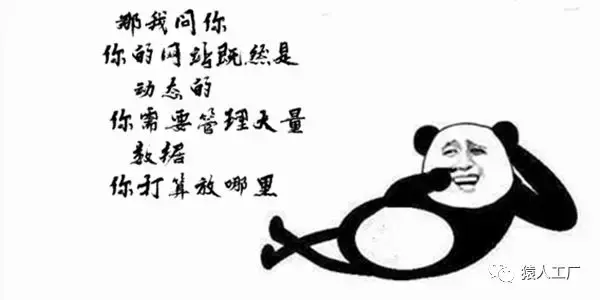 那我问你
你的网站既然是
动态的
你需要管理大量
数据
你打算放哪里
猿人工厂